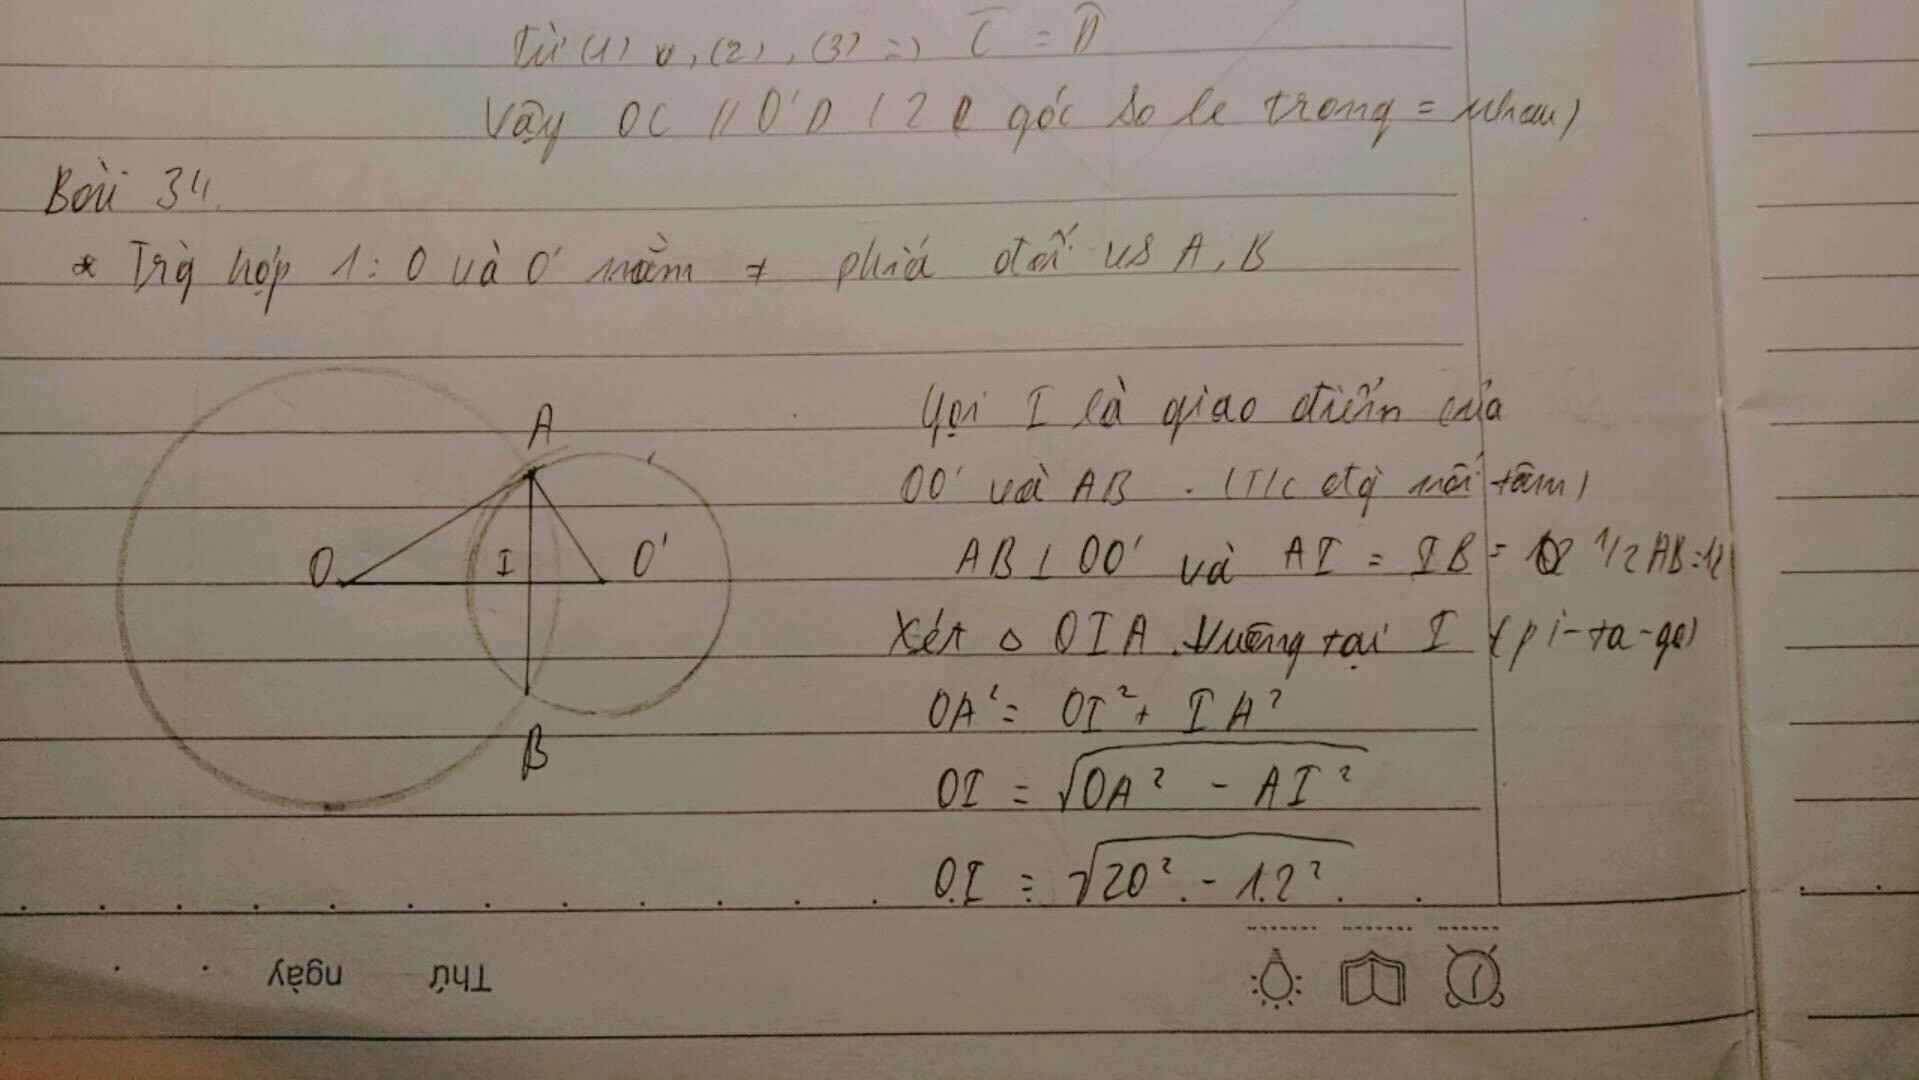 Từ (1) v, (2), (3) => C = D
Vậy OC // O'D ( 2 góc so le trong = nhau)
Bài 34.
* Trg hợp 1: O và O' nằm ≠ phía đối vs A, B
A
O I O'
B
Gọi I là giao điểm của
OO' và AB . (T/c đg nối tâm)
AB ⊥ OO' và AI = IB = 1/2 AB = 12
Xét △ OIA Vuông tại I (pi-ta-go)
OA² = OI² + IA²
OI = √OA² - AI²
OI = √20² - 12²
Thứ ngày